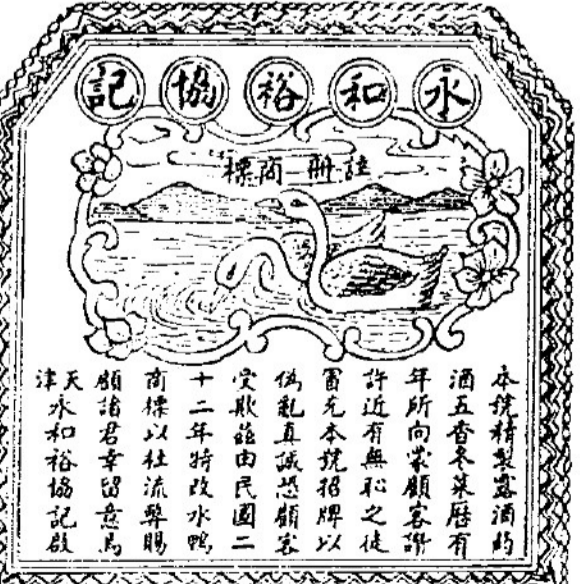 永和裕協記
註冊商標
本號精製露酒葯
酒五香冬菜歷有
年所向蒙顧客謬
許近有無恥之徒
冒充本號招牌以
偽亂真誠恐顧客
受欺茲由民國二
十二年特改水鴨
商標以杜流弊賜
顧諸君幸留意焉
天津永和裕協記啟